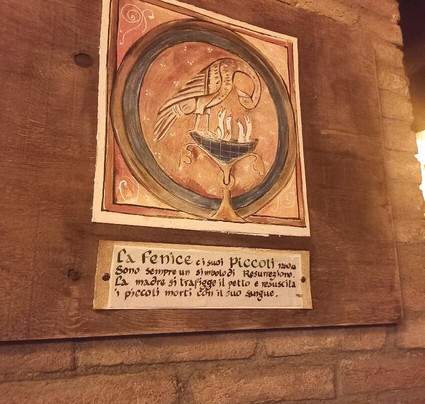 La Fenice e i suoi Piccoli
Sono sempre un simbolo di Resurrezione.
La madre si trafigge il petto e resuscita
i piccoli morti con il suo sangue.